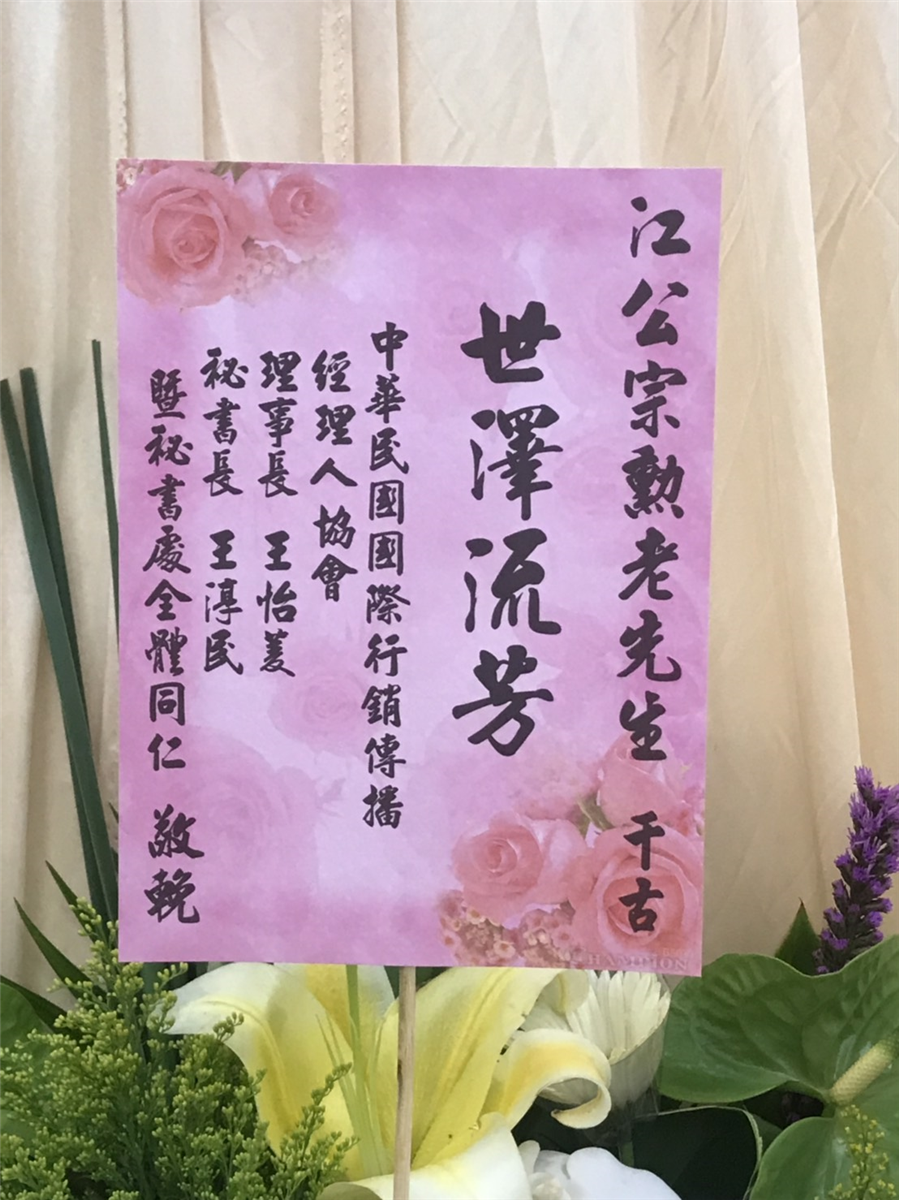 江公宗勳老先生 千古
世澤流芳
中華民國國際行銷傳播
經理人協會
理事長 王怡菱
秘書長 王淳民
暨秘書處全體同仁 敬輓
CHAMPION